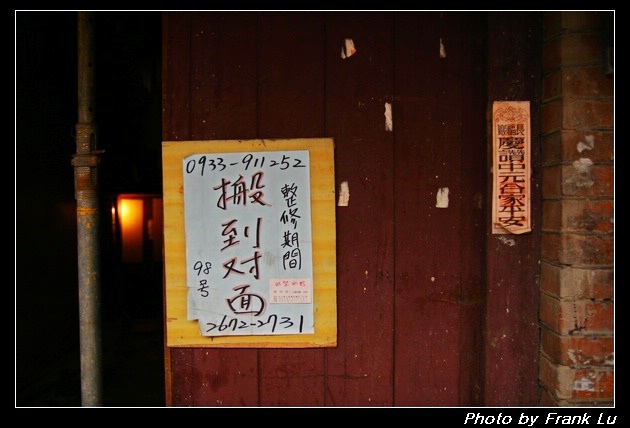 0933-911252
整修期間
搬到对面
98号
2672-2731
慶讚中元合家平安
Photo by Frank Lu